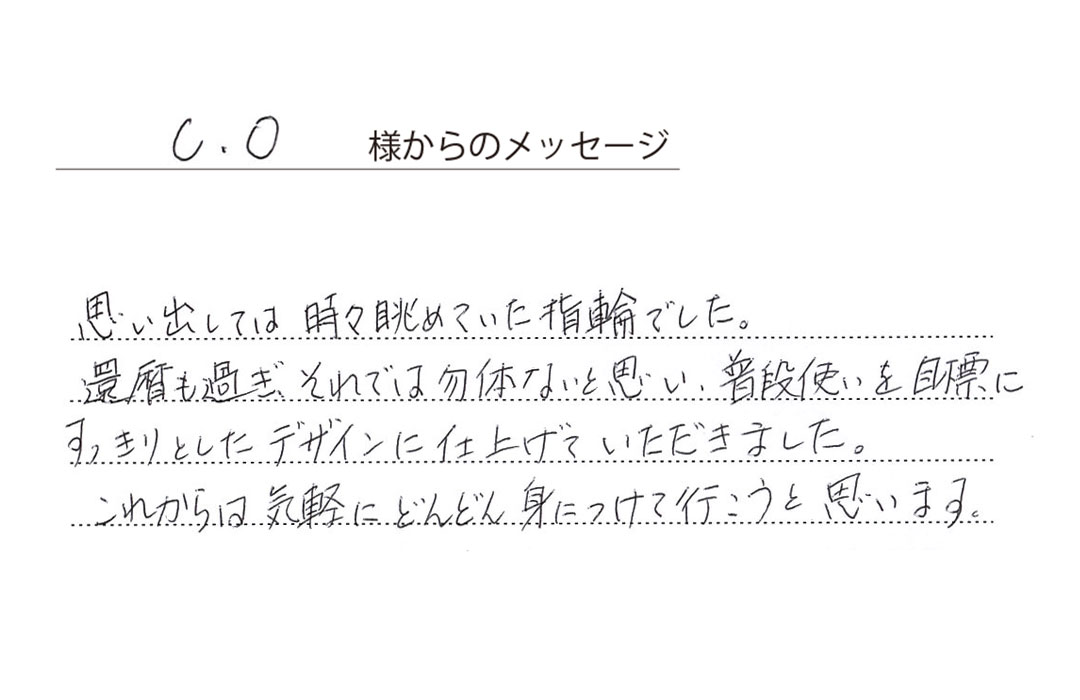 C.O 様からのメッセージ
思い出しては時々眺めていた指輪でした。
還暦も過ぎ、それでは勿体ないと思い、普段使いを目標に
すっきりとしたデザインに仕上げていただきました。
これからは気軽にどんどん身につけて行こうと思います。